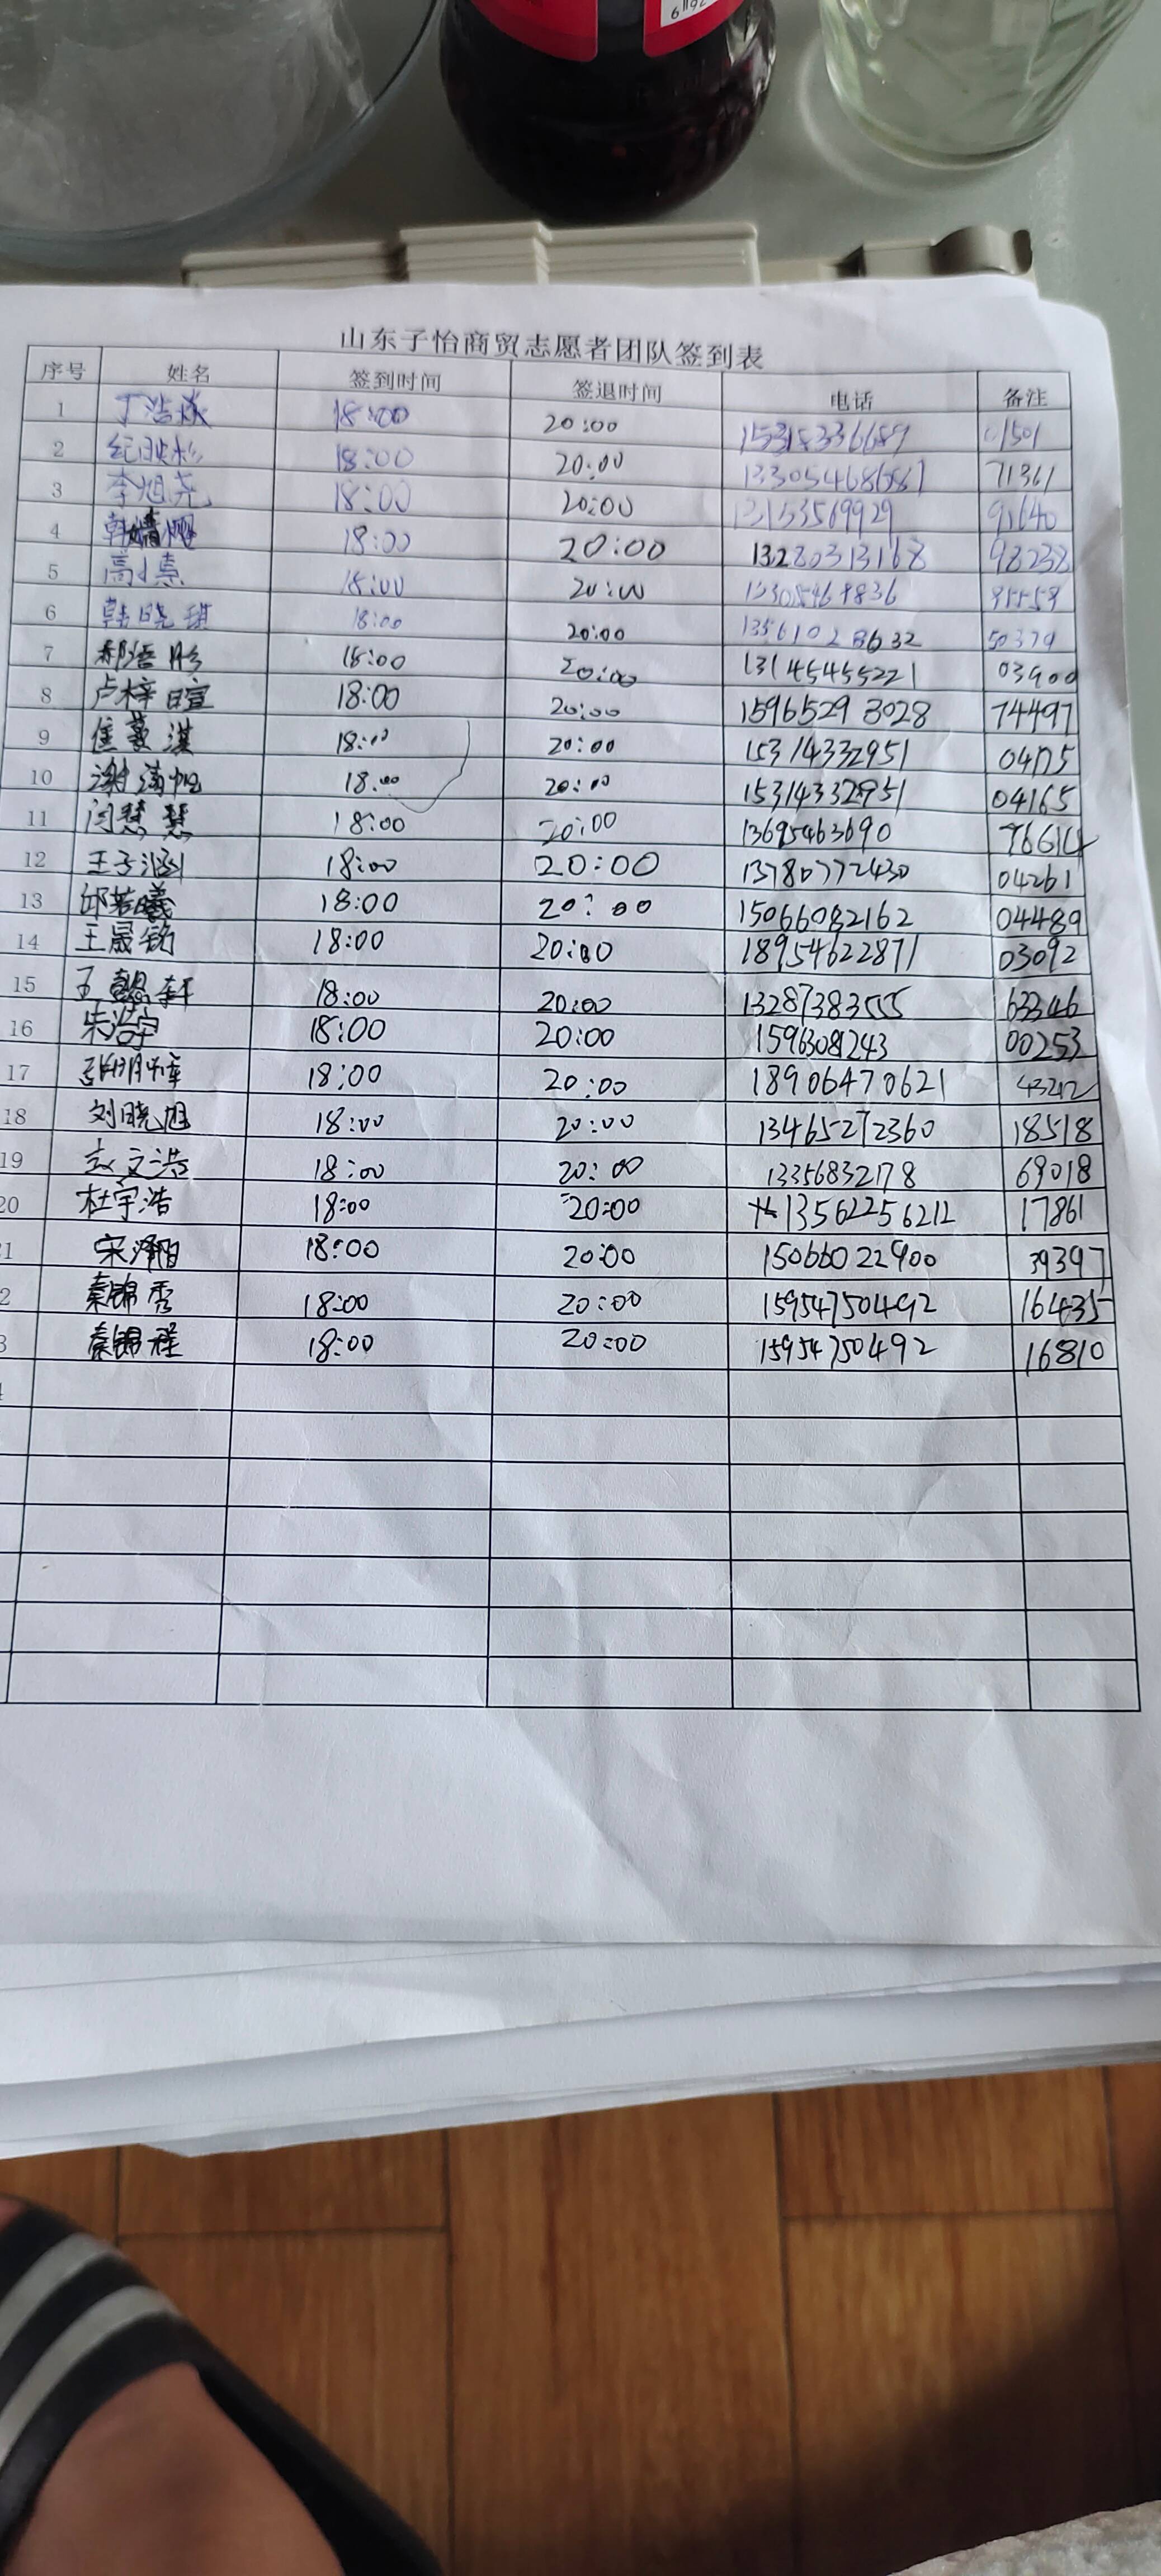 山东子怡商贸志愿者团队签到表
序号 姓名 签到时间 签退时间 电话 备注
1 丁浩 18:00 20:00 1501
2 18:00 20:00 71361
3 李旭尧 18:00 20:00 91640
4 韩婧樱 18:00 20:00 13280313168 98238
5 高 18:00 20:00
6 韩晓琪 18:00 20:00 13561028632 50379
7 郝浩彤 18:00 20:00 13145455221 03900
8 卢梓暄 18:00 20:00 15965293028 74497
9 18:00 20:00 15314332951
10 谢 18:00 20:00 15314332951 04165
11 闫慧慧 18:00 20:00 13695463690 76614
12 王子涵 18:00 20:00 13780772430 04261
13 邱若曦 18:00 20:00 15066082162 04489
14 王晟铭 18:00 20:00 18954622871 03092
15 王懿轩 18:00 20:00 13287383555 63346
16 朱浩宇 18:00 20:00 15963081243 00253
17 18:00 20:00 18906470621 43212
18 刘晓旭 18:00 20:00 13465272360 18518
19 赵文浩 18:00 20:00 13356832178 69018
20 杜宇浩 18:00 20:00 13562256212 17861
1 宋泽阳 18:00 20:00 15066022900 39397
2 秦锦秀 18:00 20:00 15954750492 16435
3 秦锦程 18:00 20:00 15954750492 16810